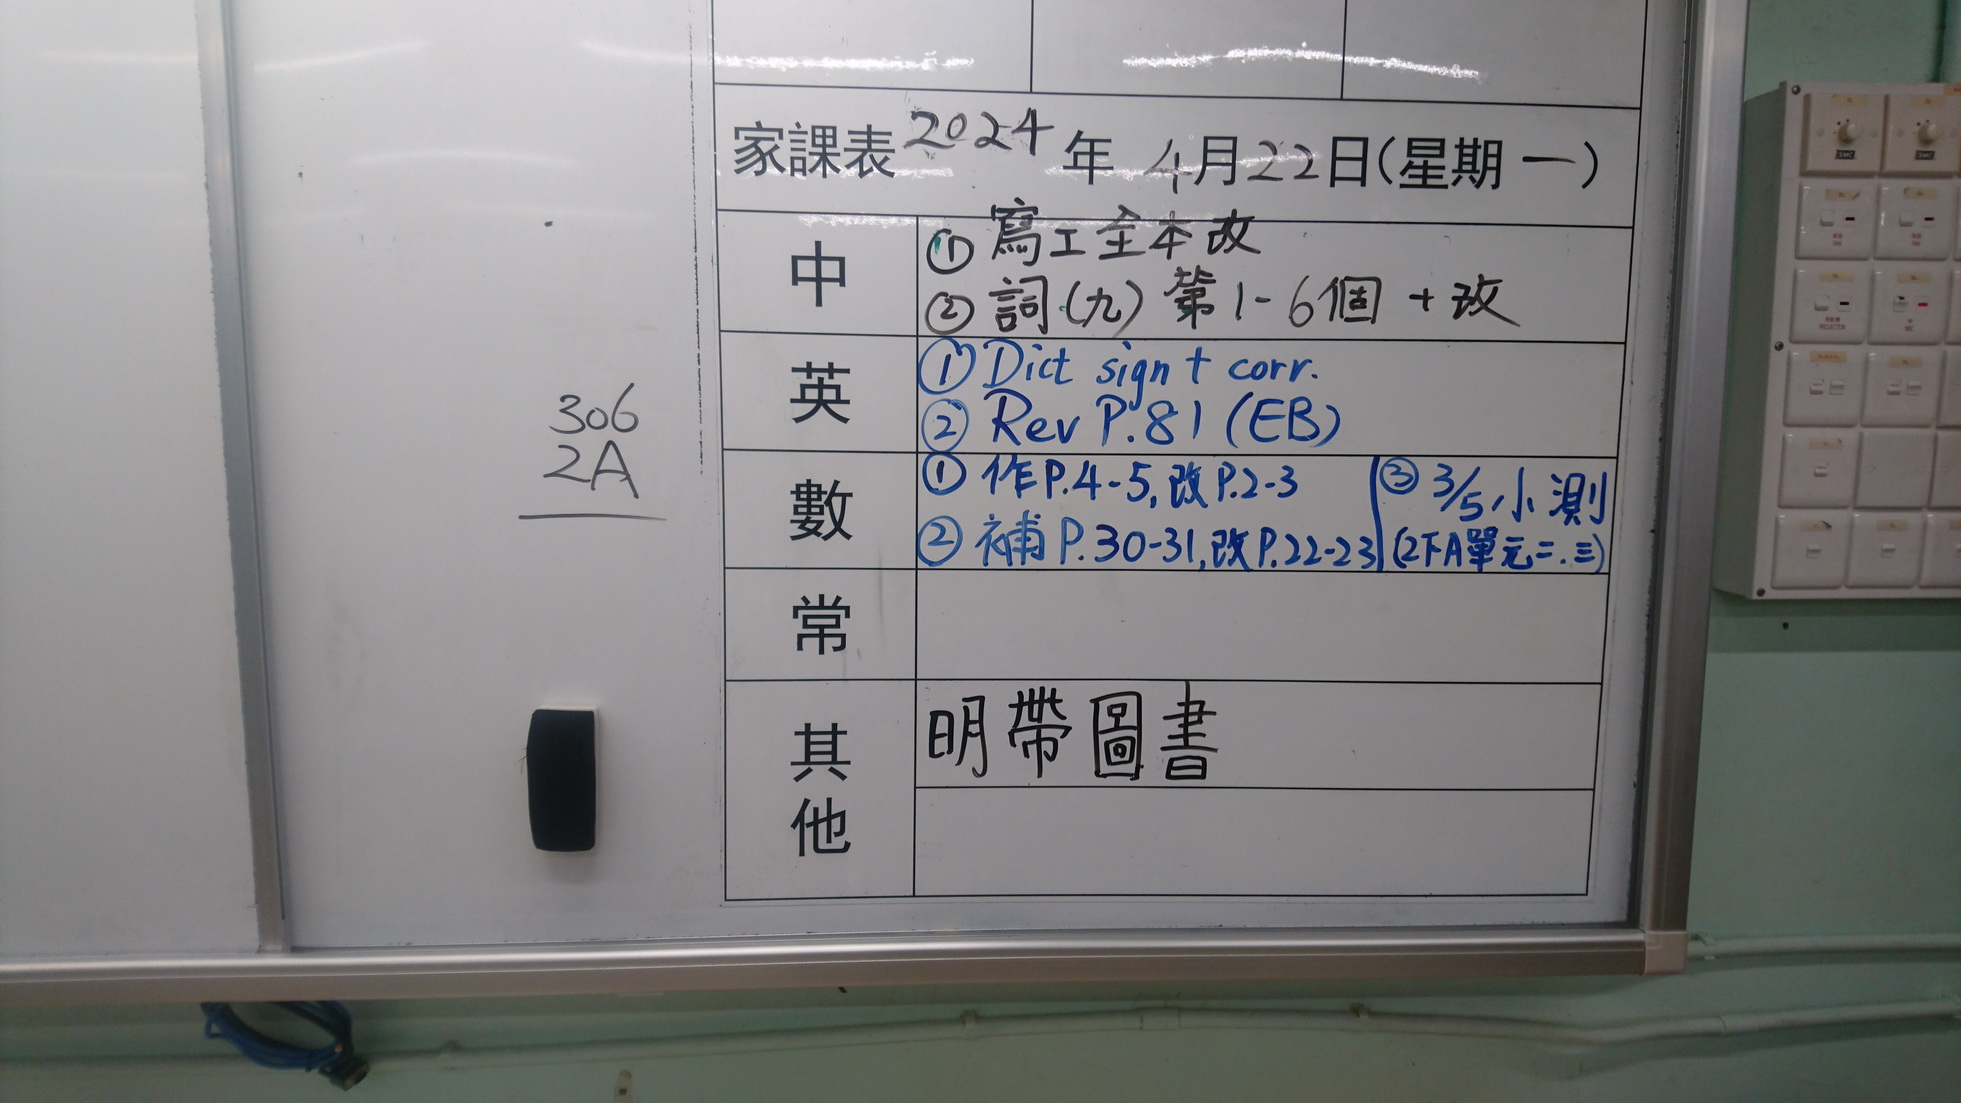 家課表 2024年 4月22日(星期一)
中
① 寫工全本改
② 詞(九) 第1-6個 + 改
英
① Dict sign + corr.
② Rev P.81 (EB)
數
① 作P.4-5, 改P.2-3
② 補P.30-31, 改P.22-23
③ 3/5 小測
(2下A單元二.三)
常
其他
明帶圖書
306
2A